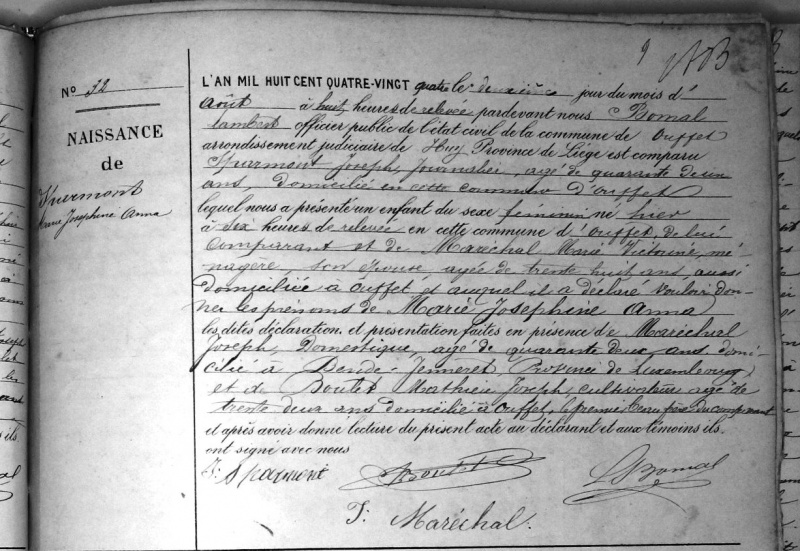 9
N° 32
NAISSANCE
de
Spurmont
Marie Josephine Anna
L'AN MIL HUIT CENT QUATRE-VINGT quatre le deuxième jour du mois d'
Août à huit heures de relevée pardevant nous Bomal
Lambert officier public de l'état civil de la commune de Ouffet
arrondissement judiciaire de Huy Province de Liége est comparu
Spurmont Joseph, Journalier, agé de quarante deux
ans, domicilié en cette commune d'Ouffet
lequel nous a présenté un enfant du sexe féminin né hier
à six heures de relevée en cette commune d'Ouffet, de lui
comparant et de Maréchal Marie Victoire, mé-
nagère, son épouse agée de trente huit ans, aussi
domiciliée à Ouffet et auquel il a déclaré vouloir don-
ner les prénoms de Marie Josephine Anna
les dites déclaration et présentation faites en présence de Maréchal
Joseph, Domestique, agé de quarante deux ans domi-
cilié à Bande-Jenneret Province de Luxembourg
et de Boutet Mathieu Joseph, cultivateur agé de
trente deux ans domicilié à Ouffet, le premier beau frère du comparant
et après avoir donné lecture du présent acte au déclarant et aux témoins ils
ont signé avec nous
J: Spurmont Boutet L Bomal
J: Maréchal.